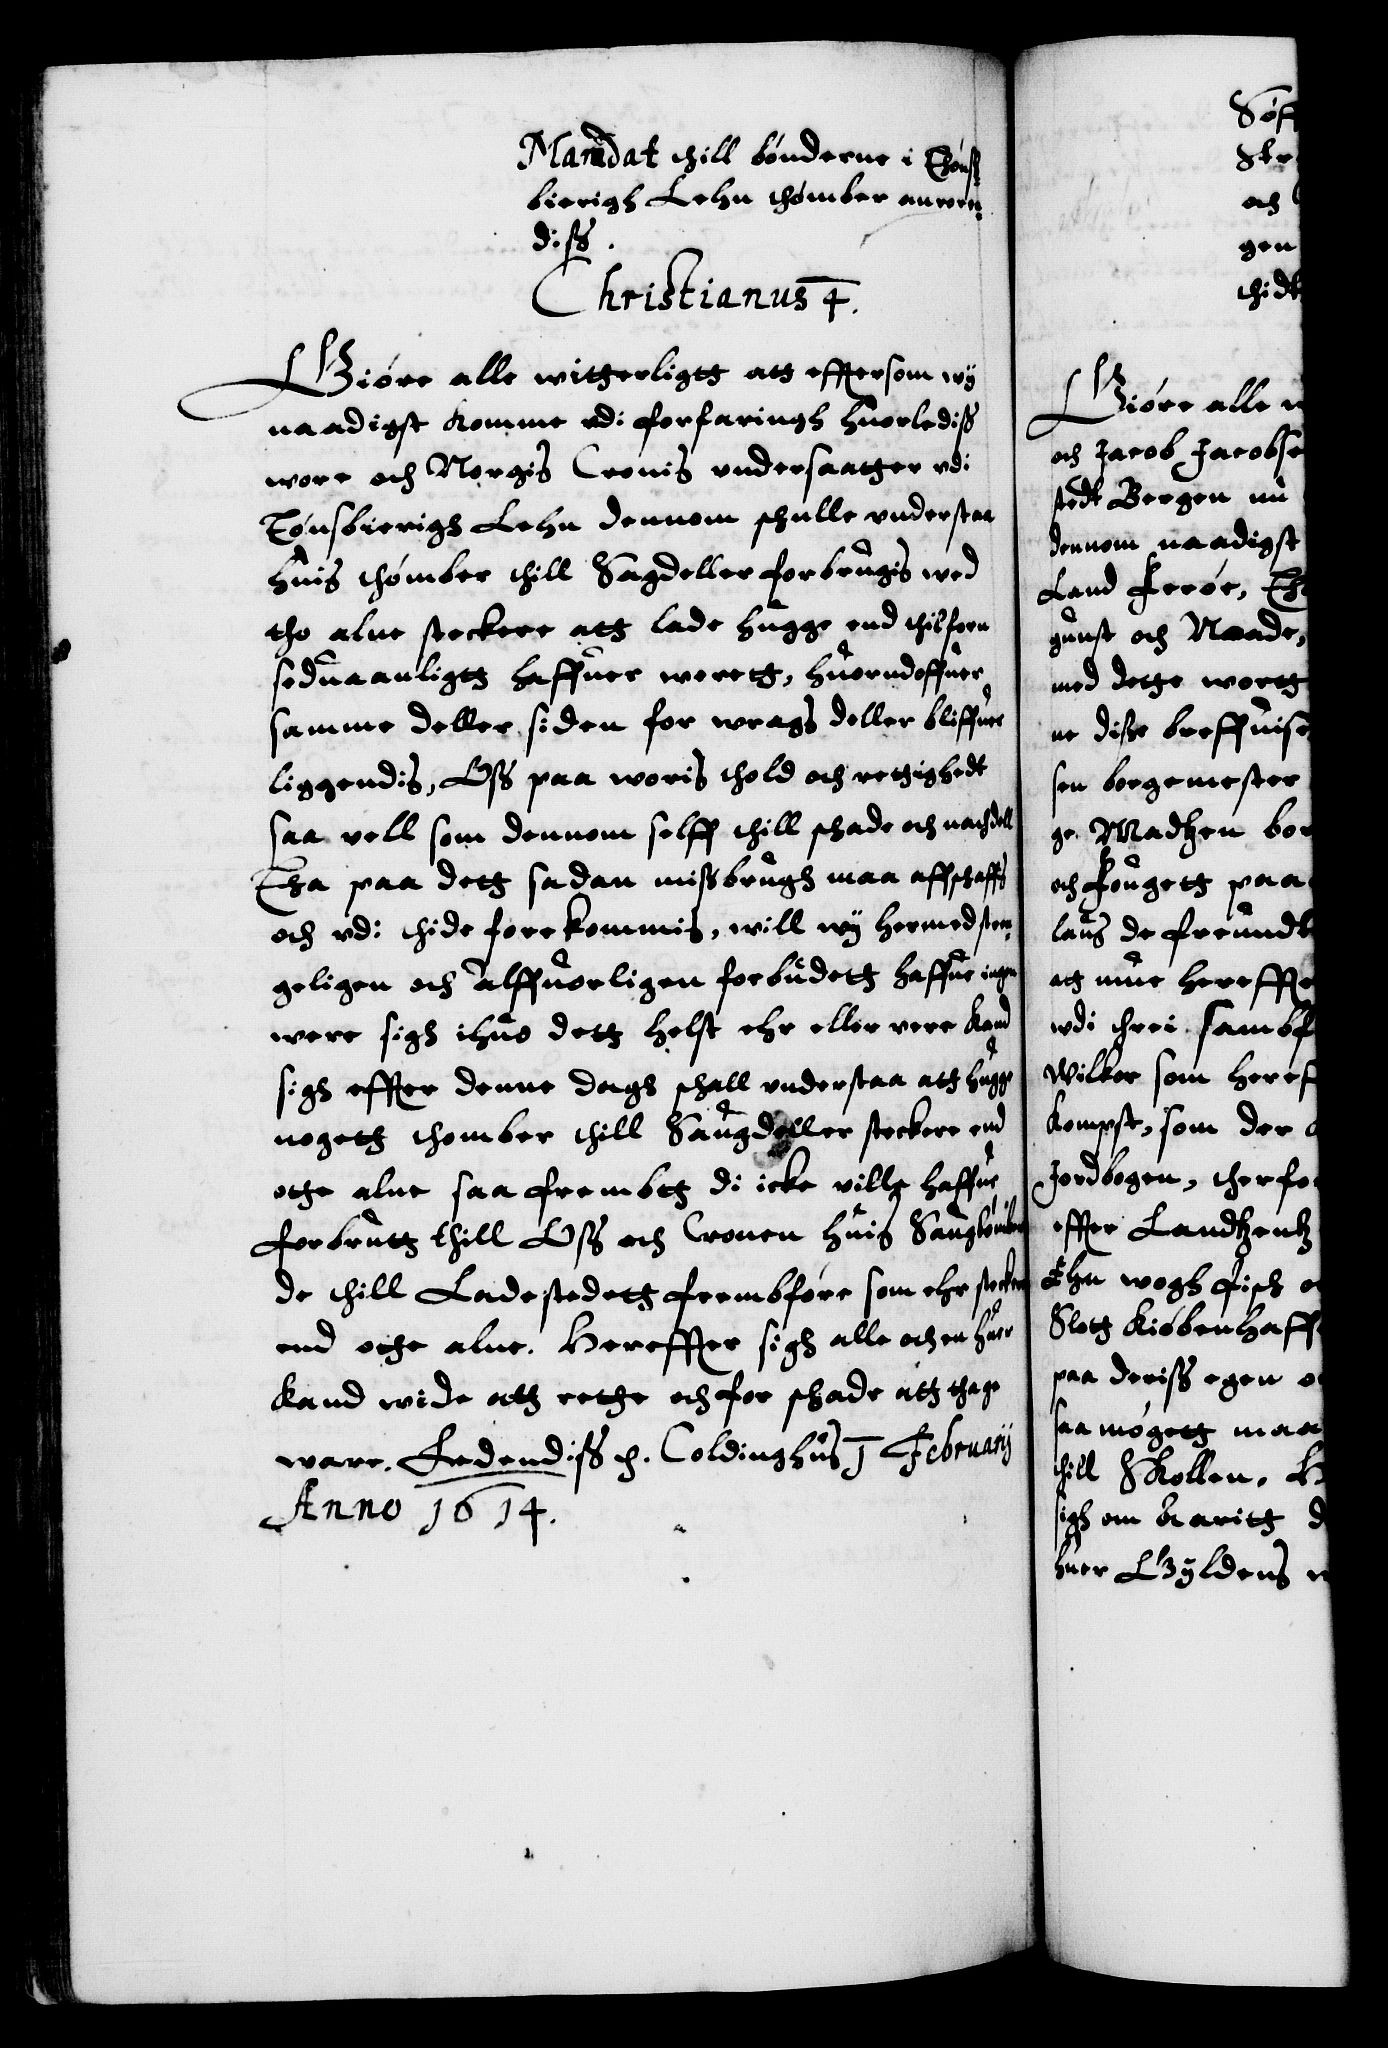 Mandat thill bønderne i Thøns-
bierigh Lehn thømber anren-
diss.
Christianus 4.
Giøre alle witherligtt att efftersom wy
naadigst komme udi forfaringh huorlediss
wore och Norgis Cronis undersaatther udi
Tønsbierigh Lehn dennom schulle understaa
huis thømber thill Sagdeller forbrugis wed
tho alne steckere att lade hugge end thilforn
seduaanligtt haffuer werett, huorudoffuer
samme deller siden for wrags deller bliffuer
liggendis, Oss paa woris thold och rettighedt
saa vell som dennom selff thill schade och nachdell
Tha paa dett sadan missbrugh maa affschaffis
och udi thide forekommis, will wy hermed stren-
geligen och alffuorligen forbudett haffue ingen
were sigh ihuo dett helst ehr eller vere kand
sigh effter denne dagh schall understaa att hugge
nogett thomber thill Saugdeller steckere end
otte alne saa frembtt di icke ville haffue
forbrutt thill Oss och Cronen huis Saugtømber
de thill Ladestedett frembføre som ehr stecker
end otte alne. Hereffter sigh alle och en huer
kand wide att rette och for schade att thage
ware. Ledendiss p. Coldinghus 1 February
Anno 1614.
Søff
Skr
och
gen
thidt
Giøre alle w
och Jacob Jacobse
stedt Bergen nu
dennom naadigst
Land Ferøe, Th
gunst och Naade,
med dette wortt
ne disse breffuise
sen borgemester
ge Madtzen bor
och Fougett paa
laus de freundt
att mue hereffte
udi threi sambf
Wilkor som heref
kompst, som der
Jordbogen, therfo
effter Landtzentz
Ehn wogh fisch o
Slott Kiøbenhaff
paa deriss egen o
saa møgett maa
thill Skollen. H
sigh om baritt d
huer Gyldens w